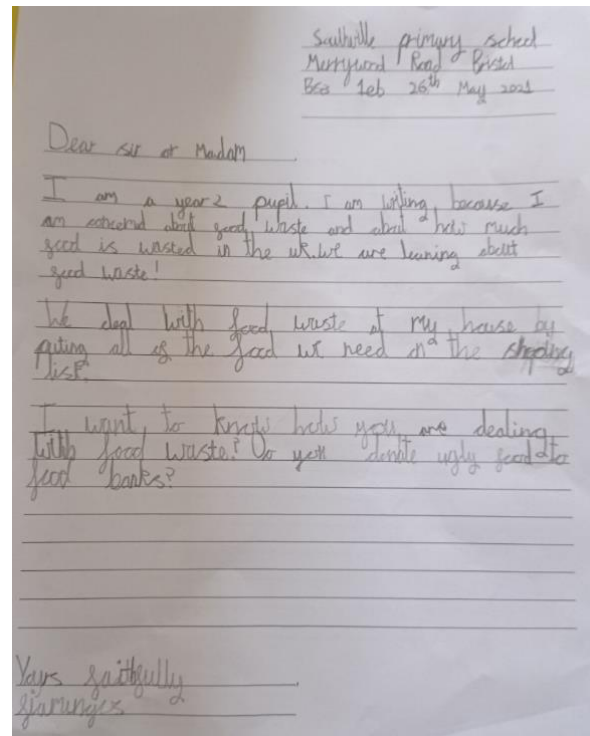 Southville primary school
Merrywood Road Bristol
BS3 1eb 26th May 2021
Dear sir or Madam
I am a year 2 pupil. I am writing because I
am concernd about food waste and about how much
food is wasted in the uk. We are leaning about
food waste!
We deal with food waste at my house by
puting all of the food we need on the shopping
list.
I want to know how you are dealing
with food waste? Do you donate ugly food to
food banks?
Yays faithfully